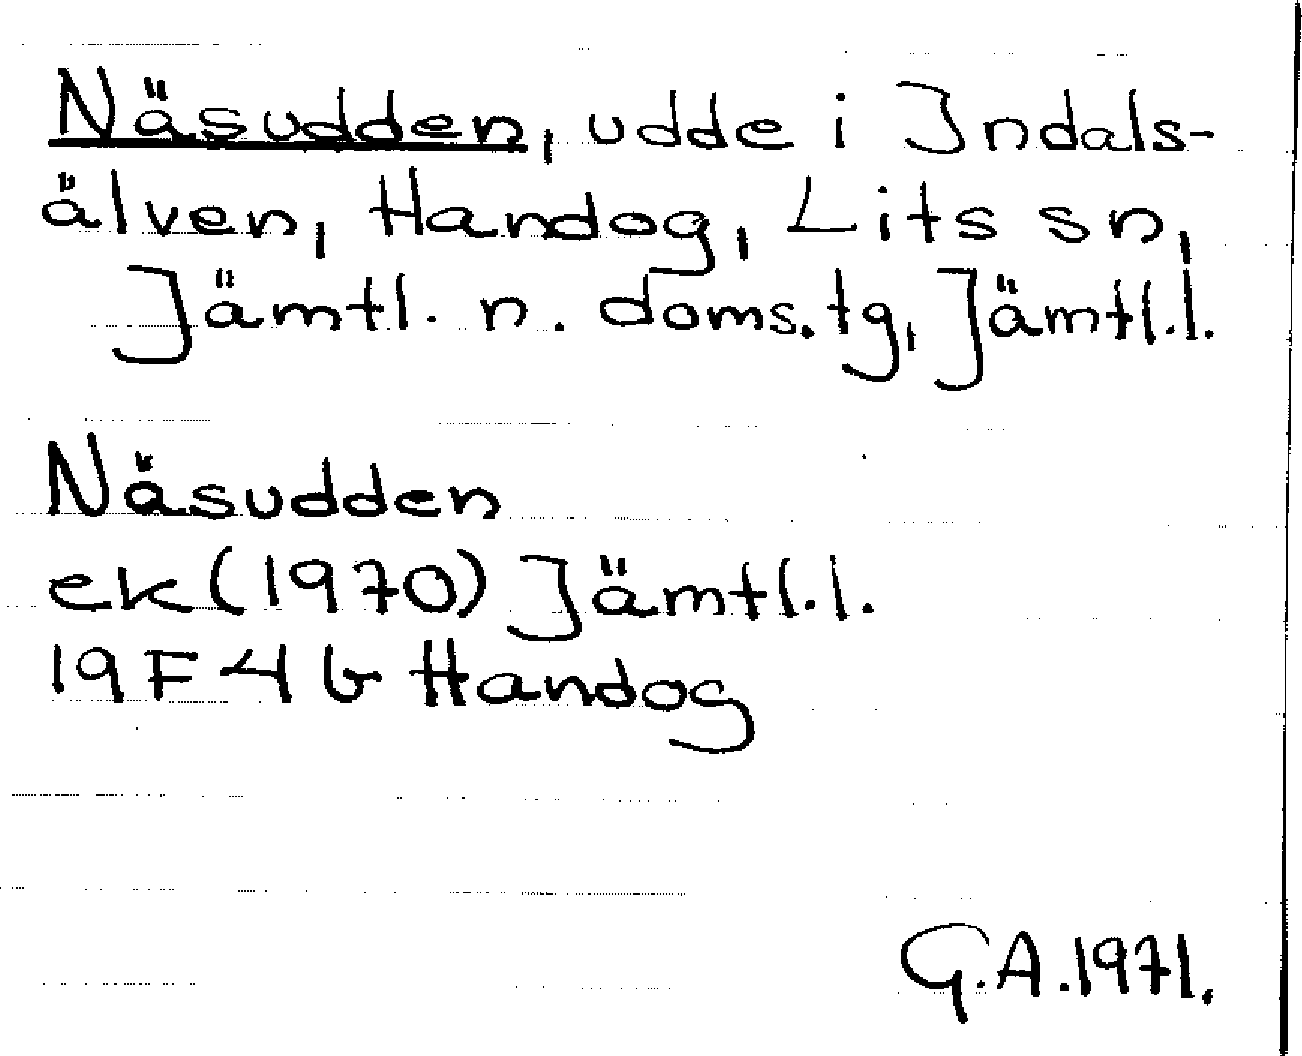 Näsudden, udde i Indals-
älven, Handog, Lits sn,
Jämtl. n. doms.tg, Jämtl.l.
Näsudden
ek (1970) Jämtl.l.
19F 4b Handog
G.A.1971.